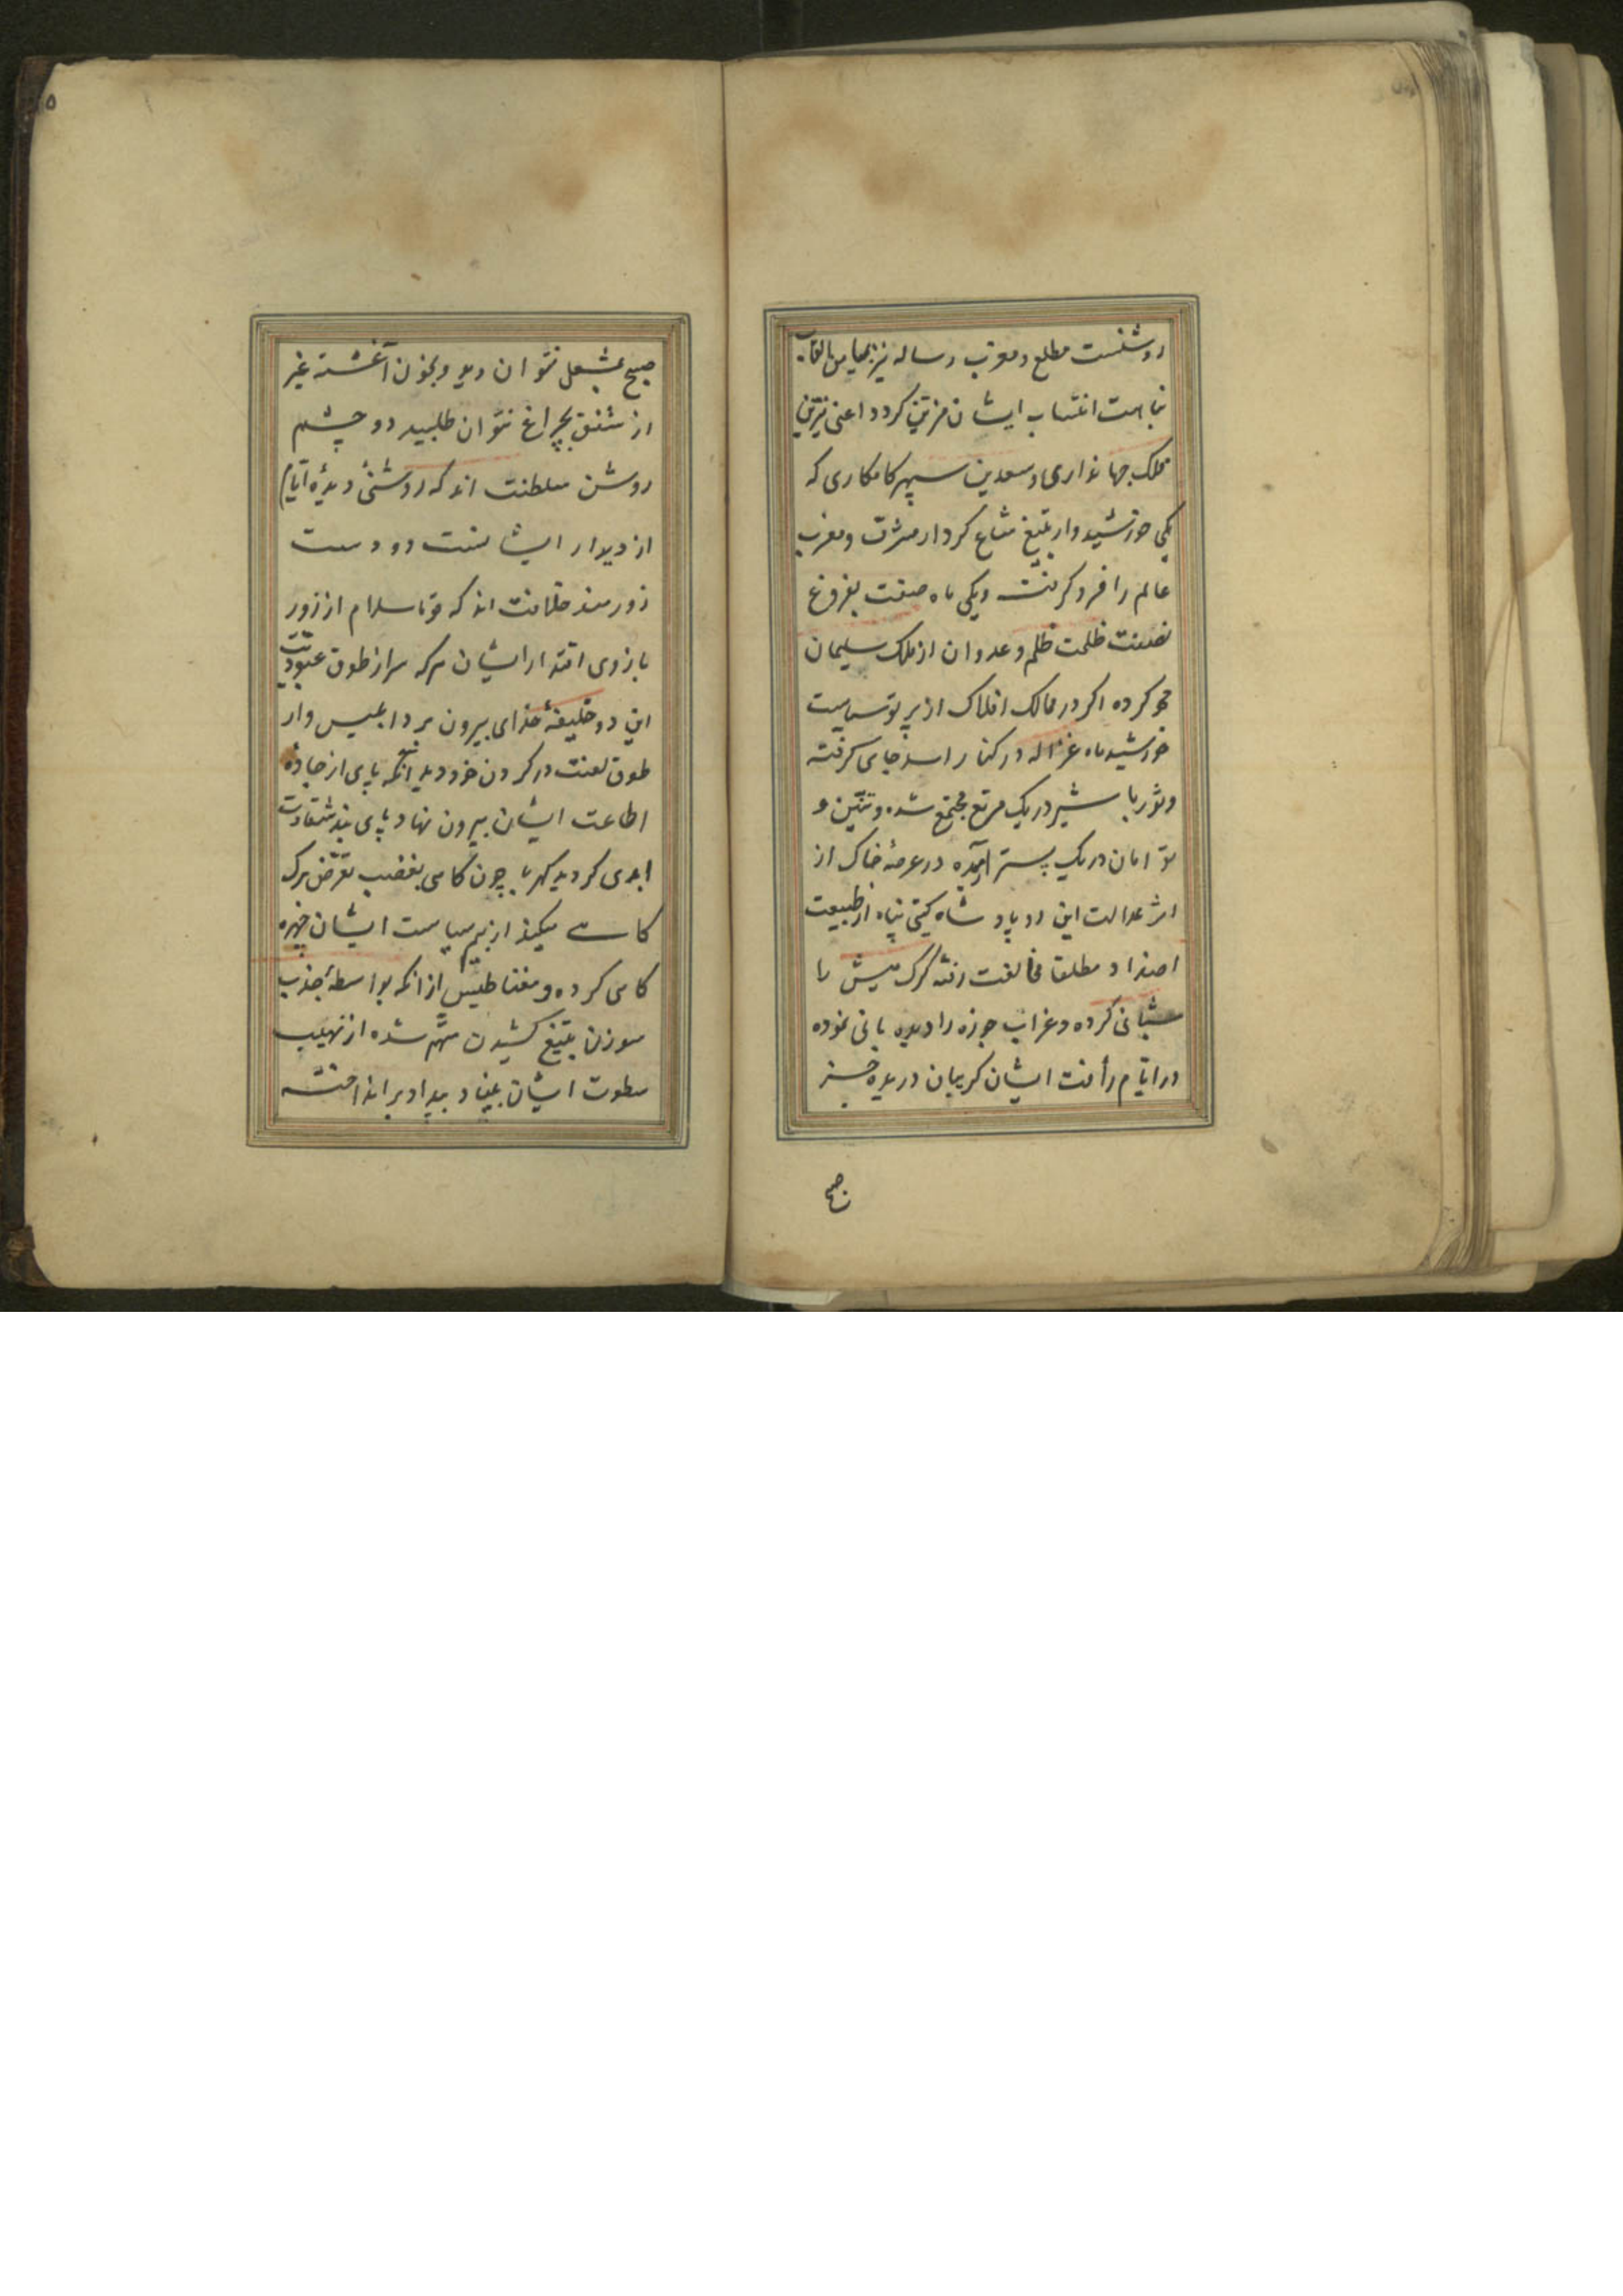 روشنست مطلع و مغرب رساله نیز بمیامن القاب
نباهت انتساب ایشان مزیّن کردد اعنی نیّرین
فلک جهانداری و سعدین سپهر کامکاری که
یکی خورشیدوار بتیغ شعاع کردار مشرق و مغرب
عالم را فرو کرفته و یکی ماه صفت بفروغ
نصفت ظلمت ظلم و عدوان از ملک سلیمان
محو کرده اکر در ممالک افلاک از پرتو سیاست
خورشید ماه غزاله در کنار اسد جای کرفته
و ثور با شیر در یک مرتع مجتمع شده و تنّین و
توامان در یک بستر آمده در عرصهٔ خاک از
اثر عدالت این دو پادشاه کیتی پناه از طبیعت
اضداد مطلقا مخالفت رفته کرک میش را
شبانی کرده و غراب جوزه را دیده بانی نموده
در ایّام رأفت ایشان کریبان دریده جز
صبح
صبح بمشعل نتوان دید و بخون آغشته غیر
از شفق بچراغ نتوان طلبید دو چشم
روشن سلطنت اند که روشنیٔ دیدهٔ ایّام
از دیدار ایشانست دو دست
زورمند خلافت اند که قوّت اسلام از زور
بازوی اقتدار ایشان هرکه سر از طوق عبودیّت
این دو خلیفهٔ خدای بیرون برد ابلیس وار
طوق لعنت در کردن خود دید آنکه پای از جادهٔ
اطاعت ایشان بیرون نهاد پای بند شقاوت
ابدی کردید کهربا چون کاهی بغضب تعرّض برک
کاهی میکند از بیم سیاست ایشان چهره
کاهی کرده و مغناطیس از آنکه بواسطهٔ جذب
سوزن بتیغ کشیدن متّهم شده از نهیب
سطوت ایشان بنیاد بیداد برانداخته